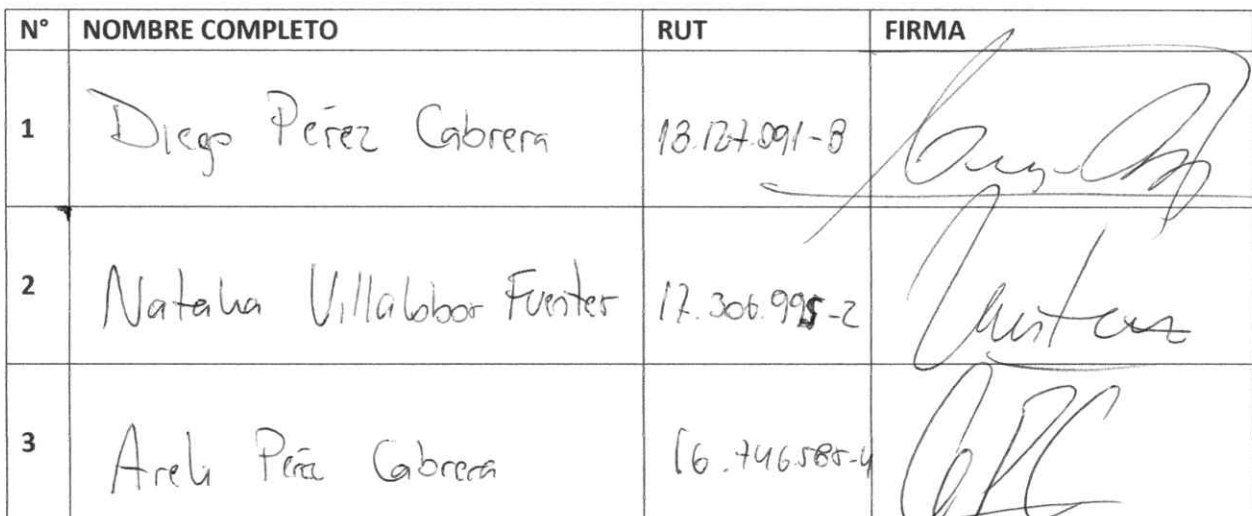 N° NOMBRE COMPLETO RUT FIRMA
1 Diego Pérez Cabrera 18.127.091-8
2 Natalia Villalobos Fuentes 17.306.995-2
3 Areli Pérez Cabrera 16.746.585-4